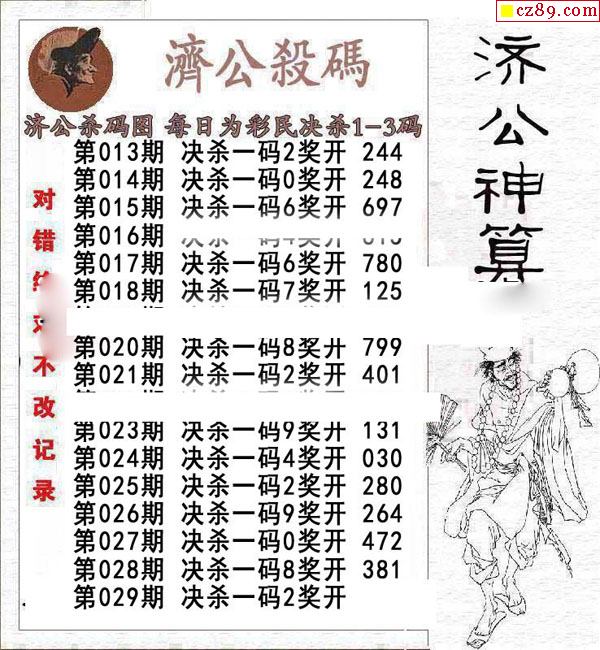 cz89.com
濟公殺碼
济公杀码图 每日为彩民决杀1-3码
第013期 决杀一码2奖开 244
第014期 决杀一码0奖开 248
第015期 决杀一码6奖开 697
第016期
第017期 决杀一码6奖开 780
第018期 决杀一码7奖开 125
第020期 决杀一码8奖开 799
第021期 决杀一码2奖开 401
第023期 决杀一码9奖开 131
第024期 决杀一码4奖开 030
第025期 决杀一码2奖开 280
第026期 决杀一码9奖开 264
第027期 决杀一码0奖开 472
第028期 决杀一码8奖开 381
第029期 决杀一码2奖开
对错
不改记录
济公神算